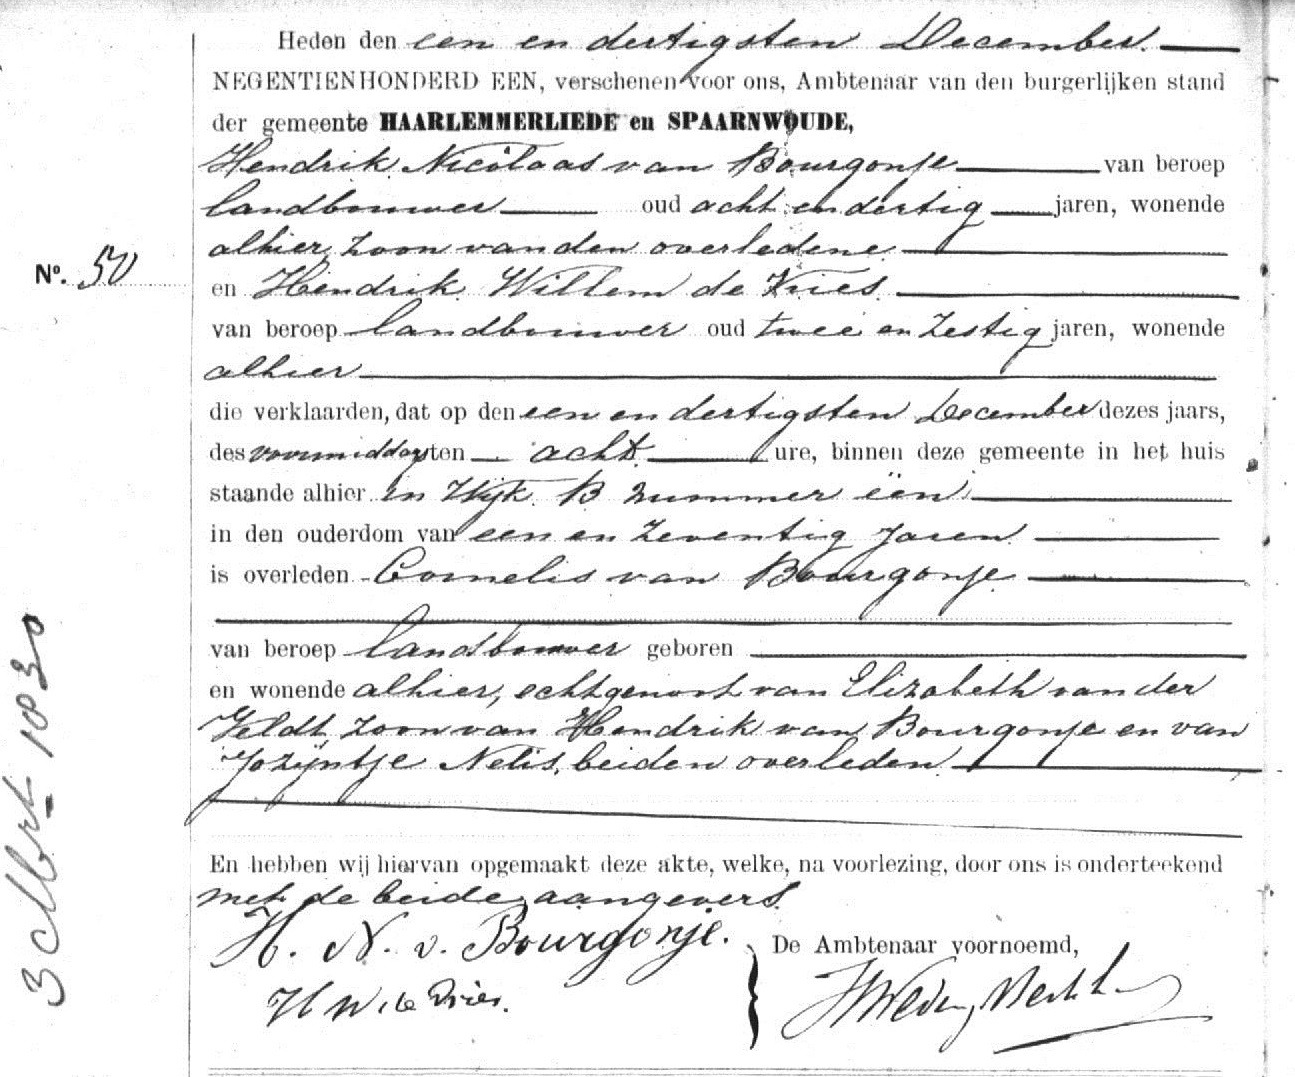 Heden den een en dertigsten December.
NEGENTIENHONDERD EEN, verschenen voor ons, Ambtenaar van den burgerlijken stand
der gemeente HAARLEMMERLIEDE en SPAARNWOUDE,
Hendrik Nicolaas van Bourgonje van beroep
landbouwer oud acht en dertig jaren, wonende
alhier, zoon van den overledene
No. 50
en Hendrik Willem de Vries
van beroep landbouwer oud twee en zestig jaren, wonende
alhier
die verklaarden, dat op den een en dertigsten December dezes jaars,
des voormiddags ten acht ure, binnen deze gemeente in het huis
staande alhier in Wijk B nummer een
in den ouderdom van een en zeventig jaren
is overleden Cornelis van Bourgonje
van beroep landbouwer geboren
en wonende alhier, echtgenoot van Elizabeth van der
Veldt, zoon van Hendrik van Bourgonje en van
Jozijntje Nelis, beiden overleden
3 Mrt 1830
En hebben wij hiervan opgemaakt deze akte, welke, na voorlezing, door ons is onderteekend
met de beide aangevers.
H. N. v. Bourgonje.
De Ambtenaar voornoemd,
H W de Vries.